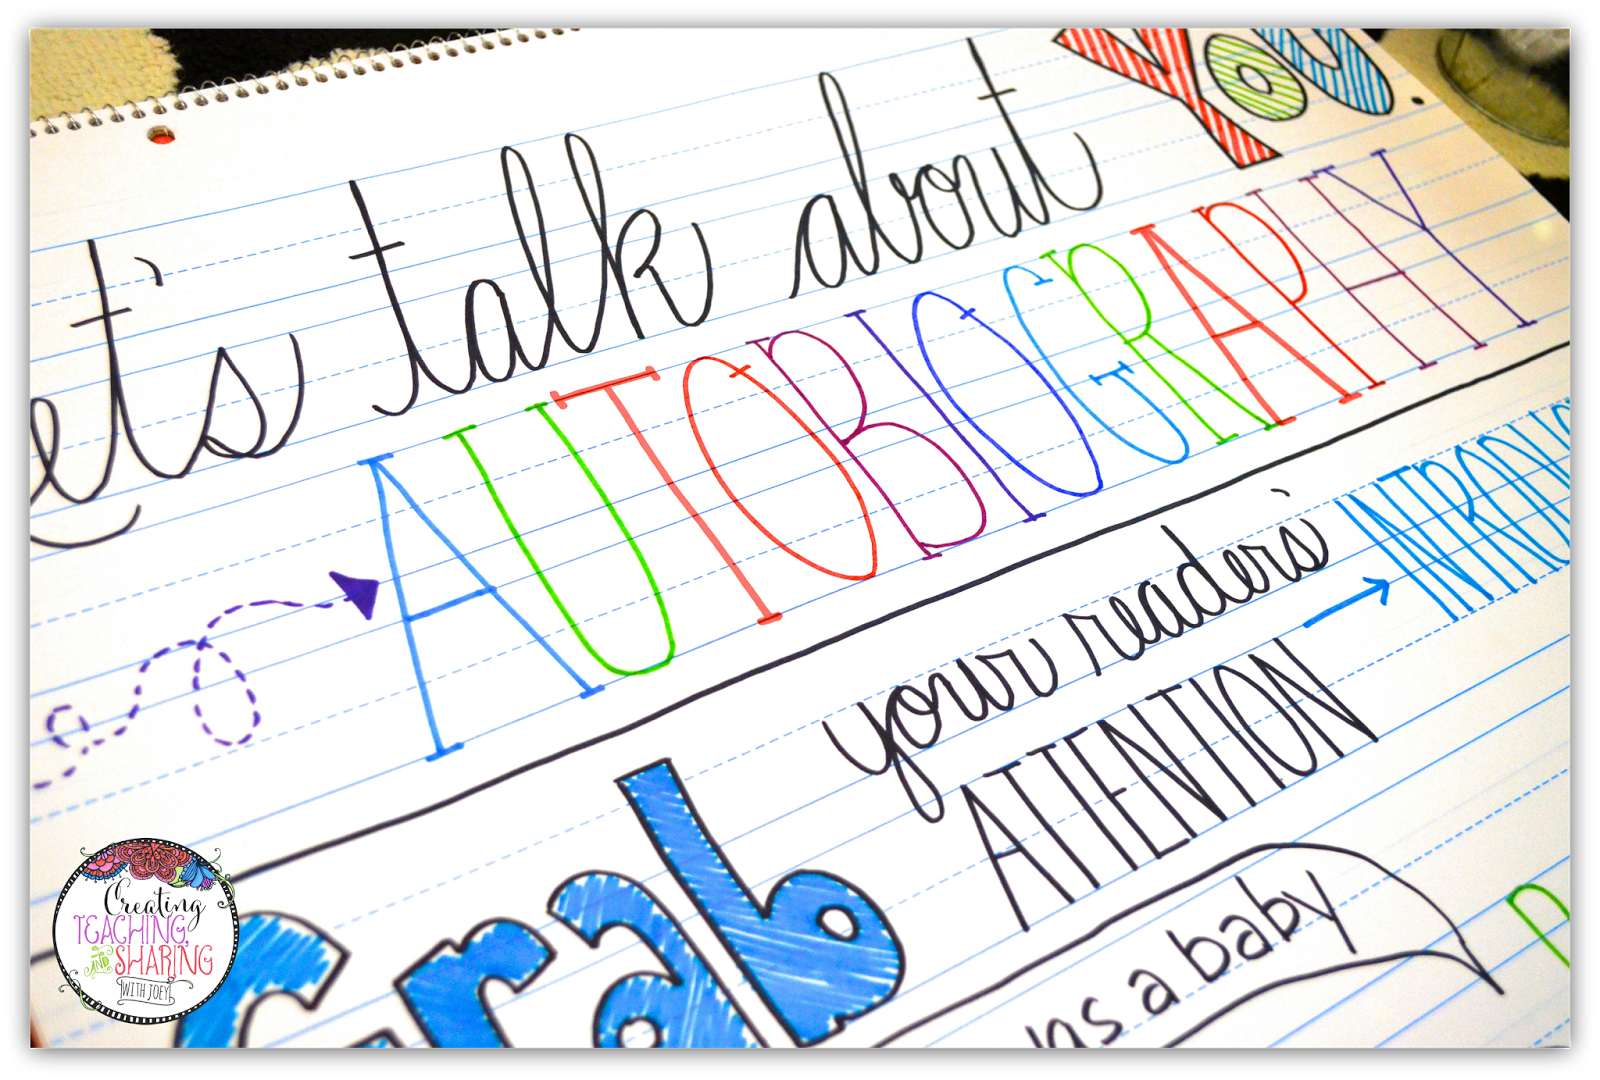 et's talk about You.
AUTOBIOGRAPHY
Grab your readers'
ATTENTION → INTRODU
ns a baby
Creating
TEACHING,
AND SHARING
WITH JOEY